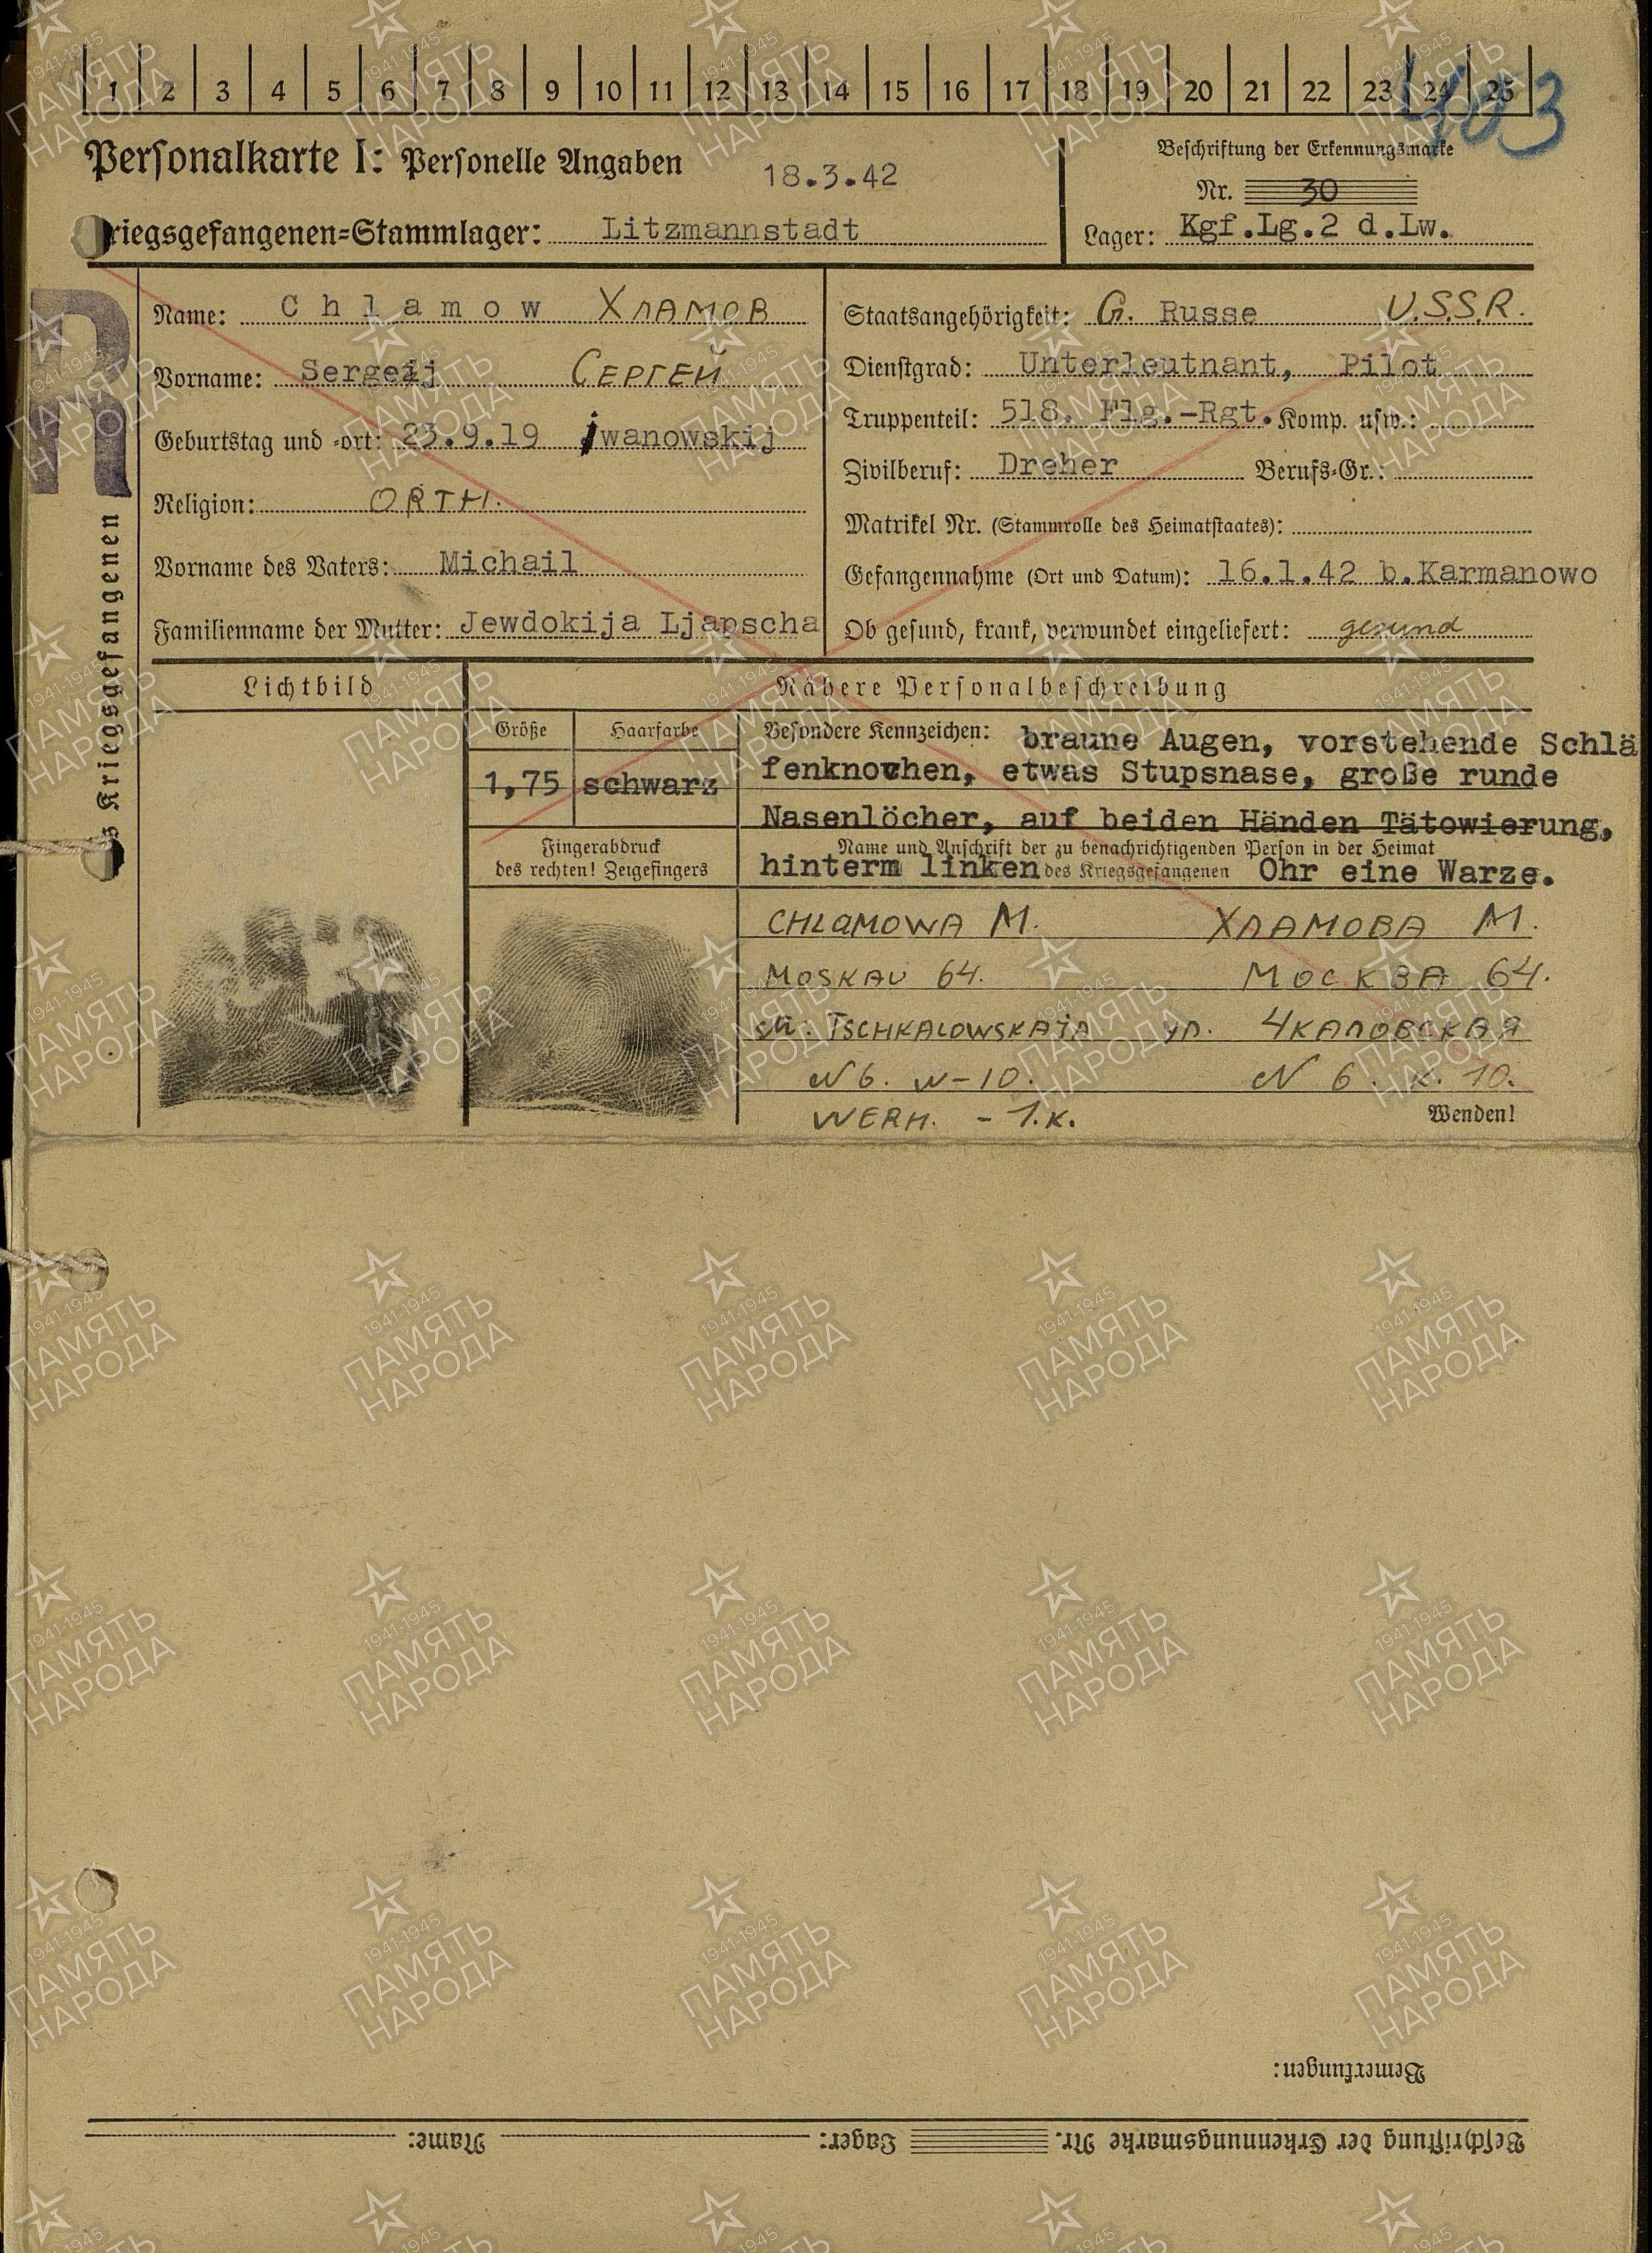 1 2 3 4 5 6 7 8 9 10 11 12 13 14 15 16 17 18 19 20 21 22 23 24 25
403
Personalkarte I: Personelle Angaben 18.3.42
Beschriftung der Erkennungsmarke
Nr. 30
Kriegsgefangenen-Stammlager: Litzmannstadt
Lager: Kgf.Lg.2 d.Lw.
R
des Kriegsgefangenen
Name: Chlamow Хламов
Vorname: Sergeij Сергей
Geburtstag und -ort: 23.9.19 Iwanowskij
Religion: ORTH.
Vorname des Vaters: Michail
Familienname der Mutter: Jewdokija Ljapscha
Staatsangehörigkeit: G. Russe U.S.S.R.
Dienstgrad: Unterleutnant, Pilot
Truppenteil: 518. Flg.-Rgt. Komp. usw.:
Zivilberuf: Dreher Berufs-Gr.:
Matrikel Nr. (Stammrolle des Heimatstaates):
Gefangennahme (Ort und Datum): 16.1.42 b.Karmanowo
Ob gesund, krank, verwundet eingeliefert: gesund
Lichtbild
Nähere Personalbeschreibung
Größe Haarfarbe
1,75 schwarz
Fingerabdruck
des rechten! Zeigefingers
Besondere Kennzeichen: braune Augen, vorstehende Schlä
fenknochen, etwas Stupsnase, große runde
Nasenlöcher, auf beiden Händen Tätowierung,
Name und Anschrift der zu benachrichtigenden Person in der Heimat
des Kriegsgefangenen
hinterm linken Ohr eine Warze.
CHLAMOWA M. ХЛАМОВА М.
MOSKAU 64. МОСКВА 64.
TSCHKALOWSKAJA ул. ЧКАЛОВСКАЯ
N 6. W-10. N 6. К. 10.
WERH. - 1.K.
Wenden!
Bemerkungen:
Beschriftung der Erkennungsmarke Nr. Lager: Name:
1941-1945
ПАМЯТЬ
НАРОДА